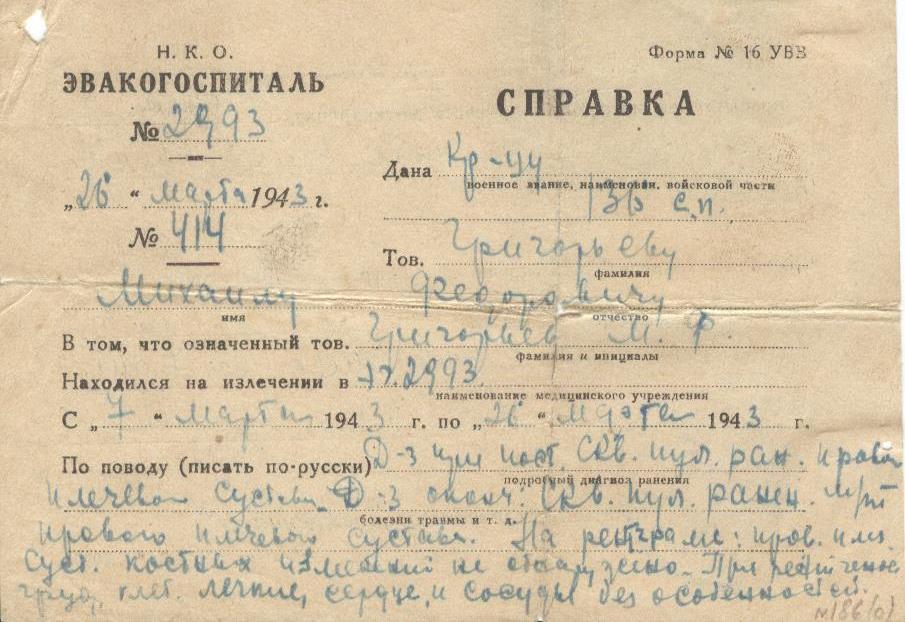 Н. К. О.
Форма № 16 УВВ
ЭВАКОГОСПИТАЛЬ
СПРАВКА
№ 2993
Дана Кр-цу
военное звание, наименован. войсковой части
„26 “ марта 1943 г.
с.п.
№ 414
Тов. Григорьеву
фамилия
Михаилу Федоровичу
имя отчество
В том, что означенный тов. Григорьев М. Ф.
фамилия и инициалы
Находился на излечении в 2993
наименование медицинского учреждения
С „ 7 “ марта 1943 г. по „26 “ марта 1943 г.
По поводу (писать по-русски) Д-з при пост. скв. пул. ран. правого
подробный диагноз ранения
плечевого сустава. Д-з оконч: скв. пул. ранен.
болезни травмы и т. д.
правого плечевого сустава. На рентграме: прав. плеч.
суст. костных изменений не обнаружено. При рентгеноск
груд. клет. легкие, сердце, и сосуды без особенностей.